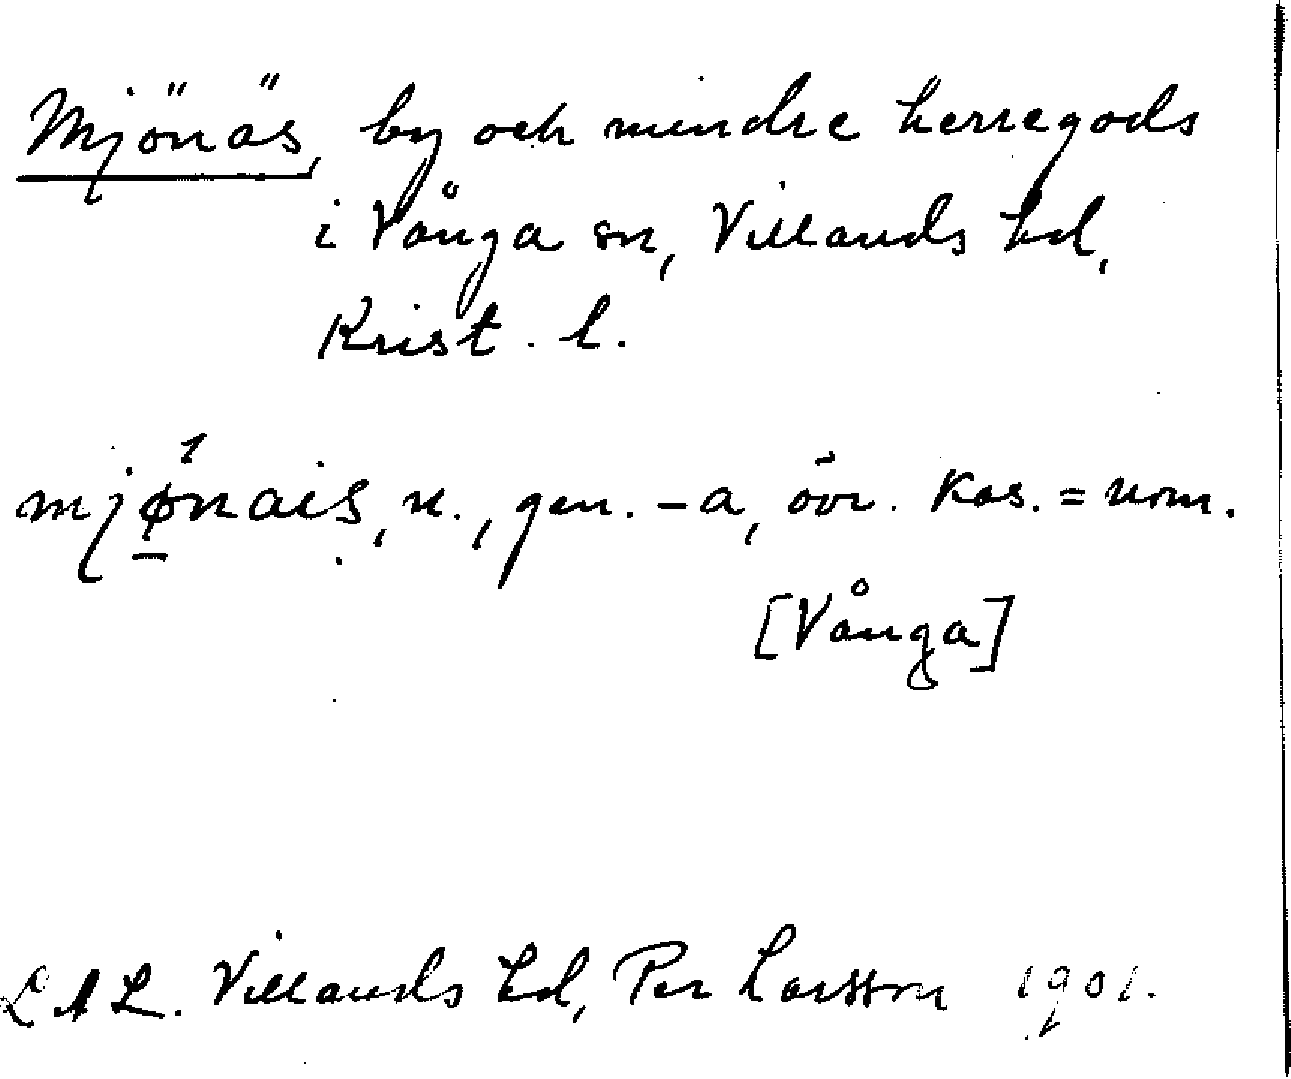 Mjönäs, by och mindre herregods
i Vånga sn, Villands hd,
Krist. l.
mjǿ̱nais, n., gen. -a, övr. kas. = nom.
[Vånga]
LAL. Villands hd, Per Larsson 1901.